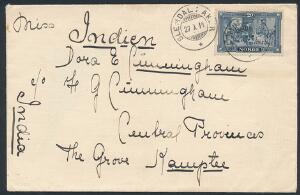 Miss
Indien
Dora E Cunningham
c/o H G Cunningham
Central Provinces
The Grove Kamptee
India
SLEMDAL I AKER
27 X 14
20
NORGE